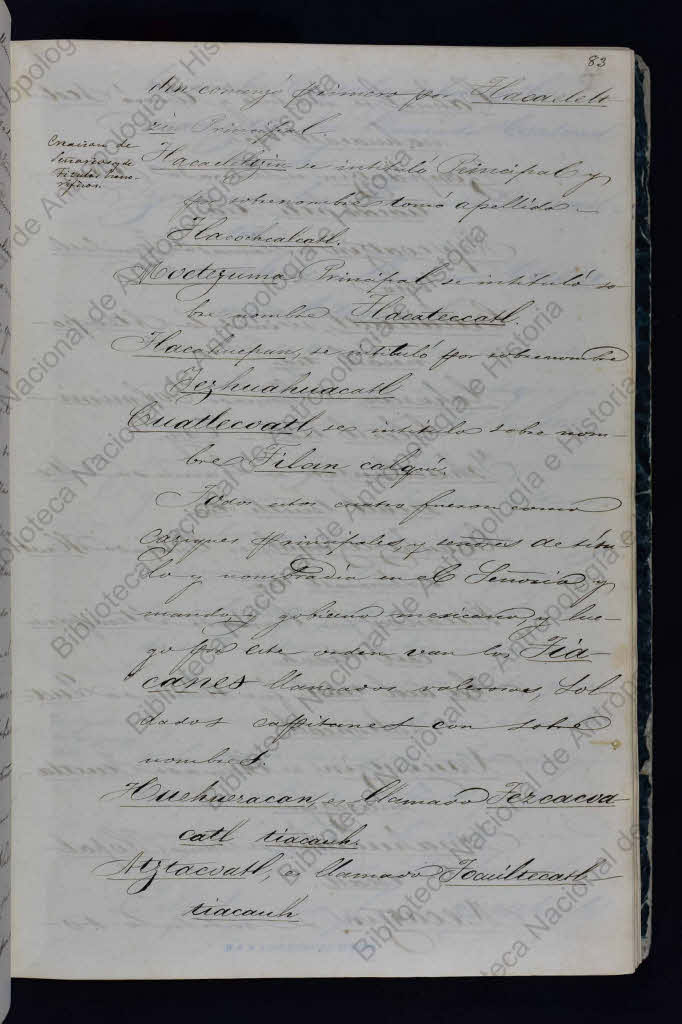 83
den comenzó primero por Tlacaelelt
zin Principal.
Creacion de
Señorios y de
Titulos
Tlacaeleltzin se intituló Principal y
por sobrenombre tomó apellido
Tlacochcalcatl.
Moctezuma Principal se intituló so
bre nombre Tlacateccatl.
Tlacahuepan, se intituló por sobrenombre
Tezhuahuacatl
Cuatlecoatl, se intitula sobre nom-
bre Tilan calqui.
Todos estos cuatro fueron como
caziques principales, y señores de títu-
lo y nombradia en el Señorio y
mando, y gobierno mexicano, y lue-
go por este orden van los Tia-
canes llamados valerosos, Sol
dados capitanes con sobre
nombres.
Huehuezacan, es llamado Tezcacoa-
catl tiacauh.
Aztacoatl, es llamado Tocuiltecatl
tiacauh
Biblioteca Nacional de Antropología e Historia